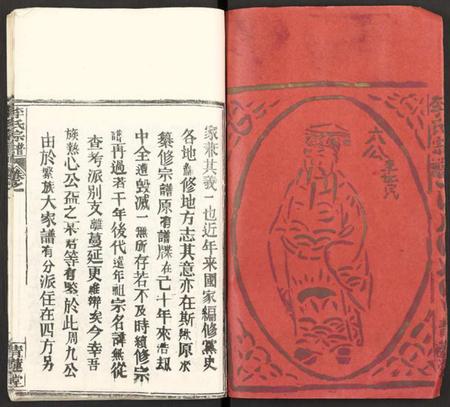 六公
李氏宗譜
家兼其義一也近年來國家編修黨史
各地纂修地方志其意亦在斯歟原水
築修宗譜原有譜牒在己十年來浩刼
中全遭毀滅一無所存若不及時續修宗
譜再過若干年後代遠年祖宗名諱無從
查考派别支離蔓延更難辨矣今幸吾
族熱心公益之等有鑒於此周九公
由於繁族大家譜有分派任在四方另
李氏宗譜
卷之一
青蓮堂